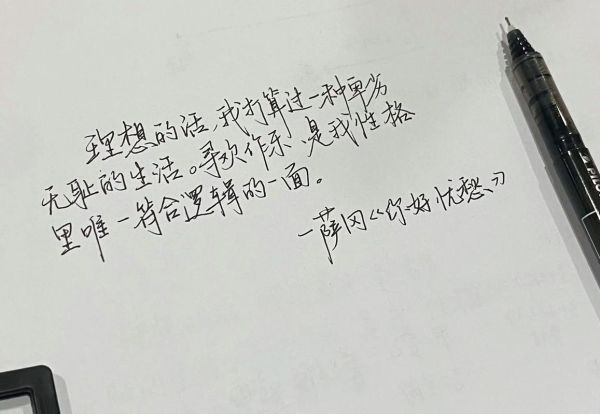 理想的话，我打算过一种卑劣
无耻的生活。寻欢作乐是我性格
里唯一符合逻辑的一面。
—萨冈《你好忧愁》